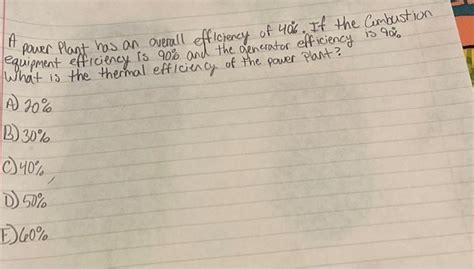 A power Plant has an overall efficiency of 40%. If the Combustion
equipment efficiency is 90% and the generator efficiency is 90%
What is the thermal efficiency of the power Plant?
A) 20%
B) 30%
C) 40%
D) 50%
E) 60%